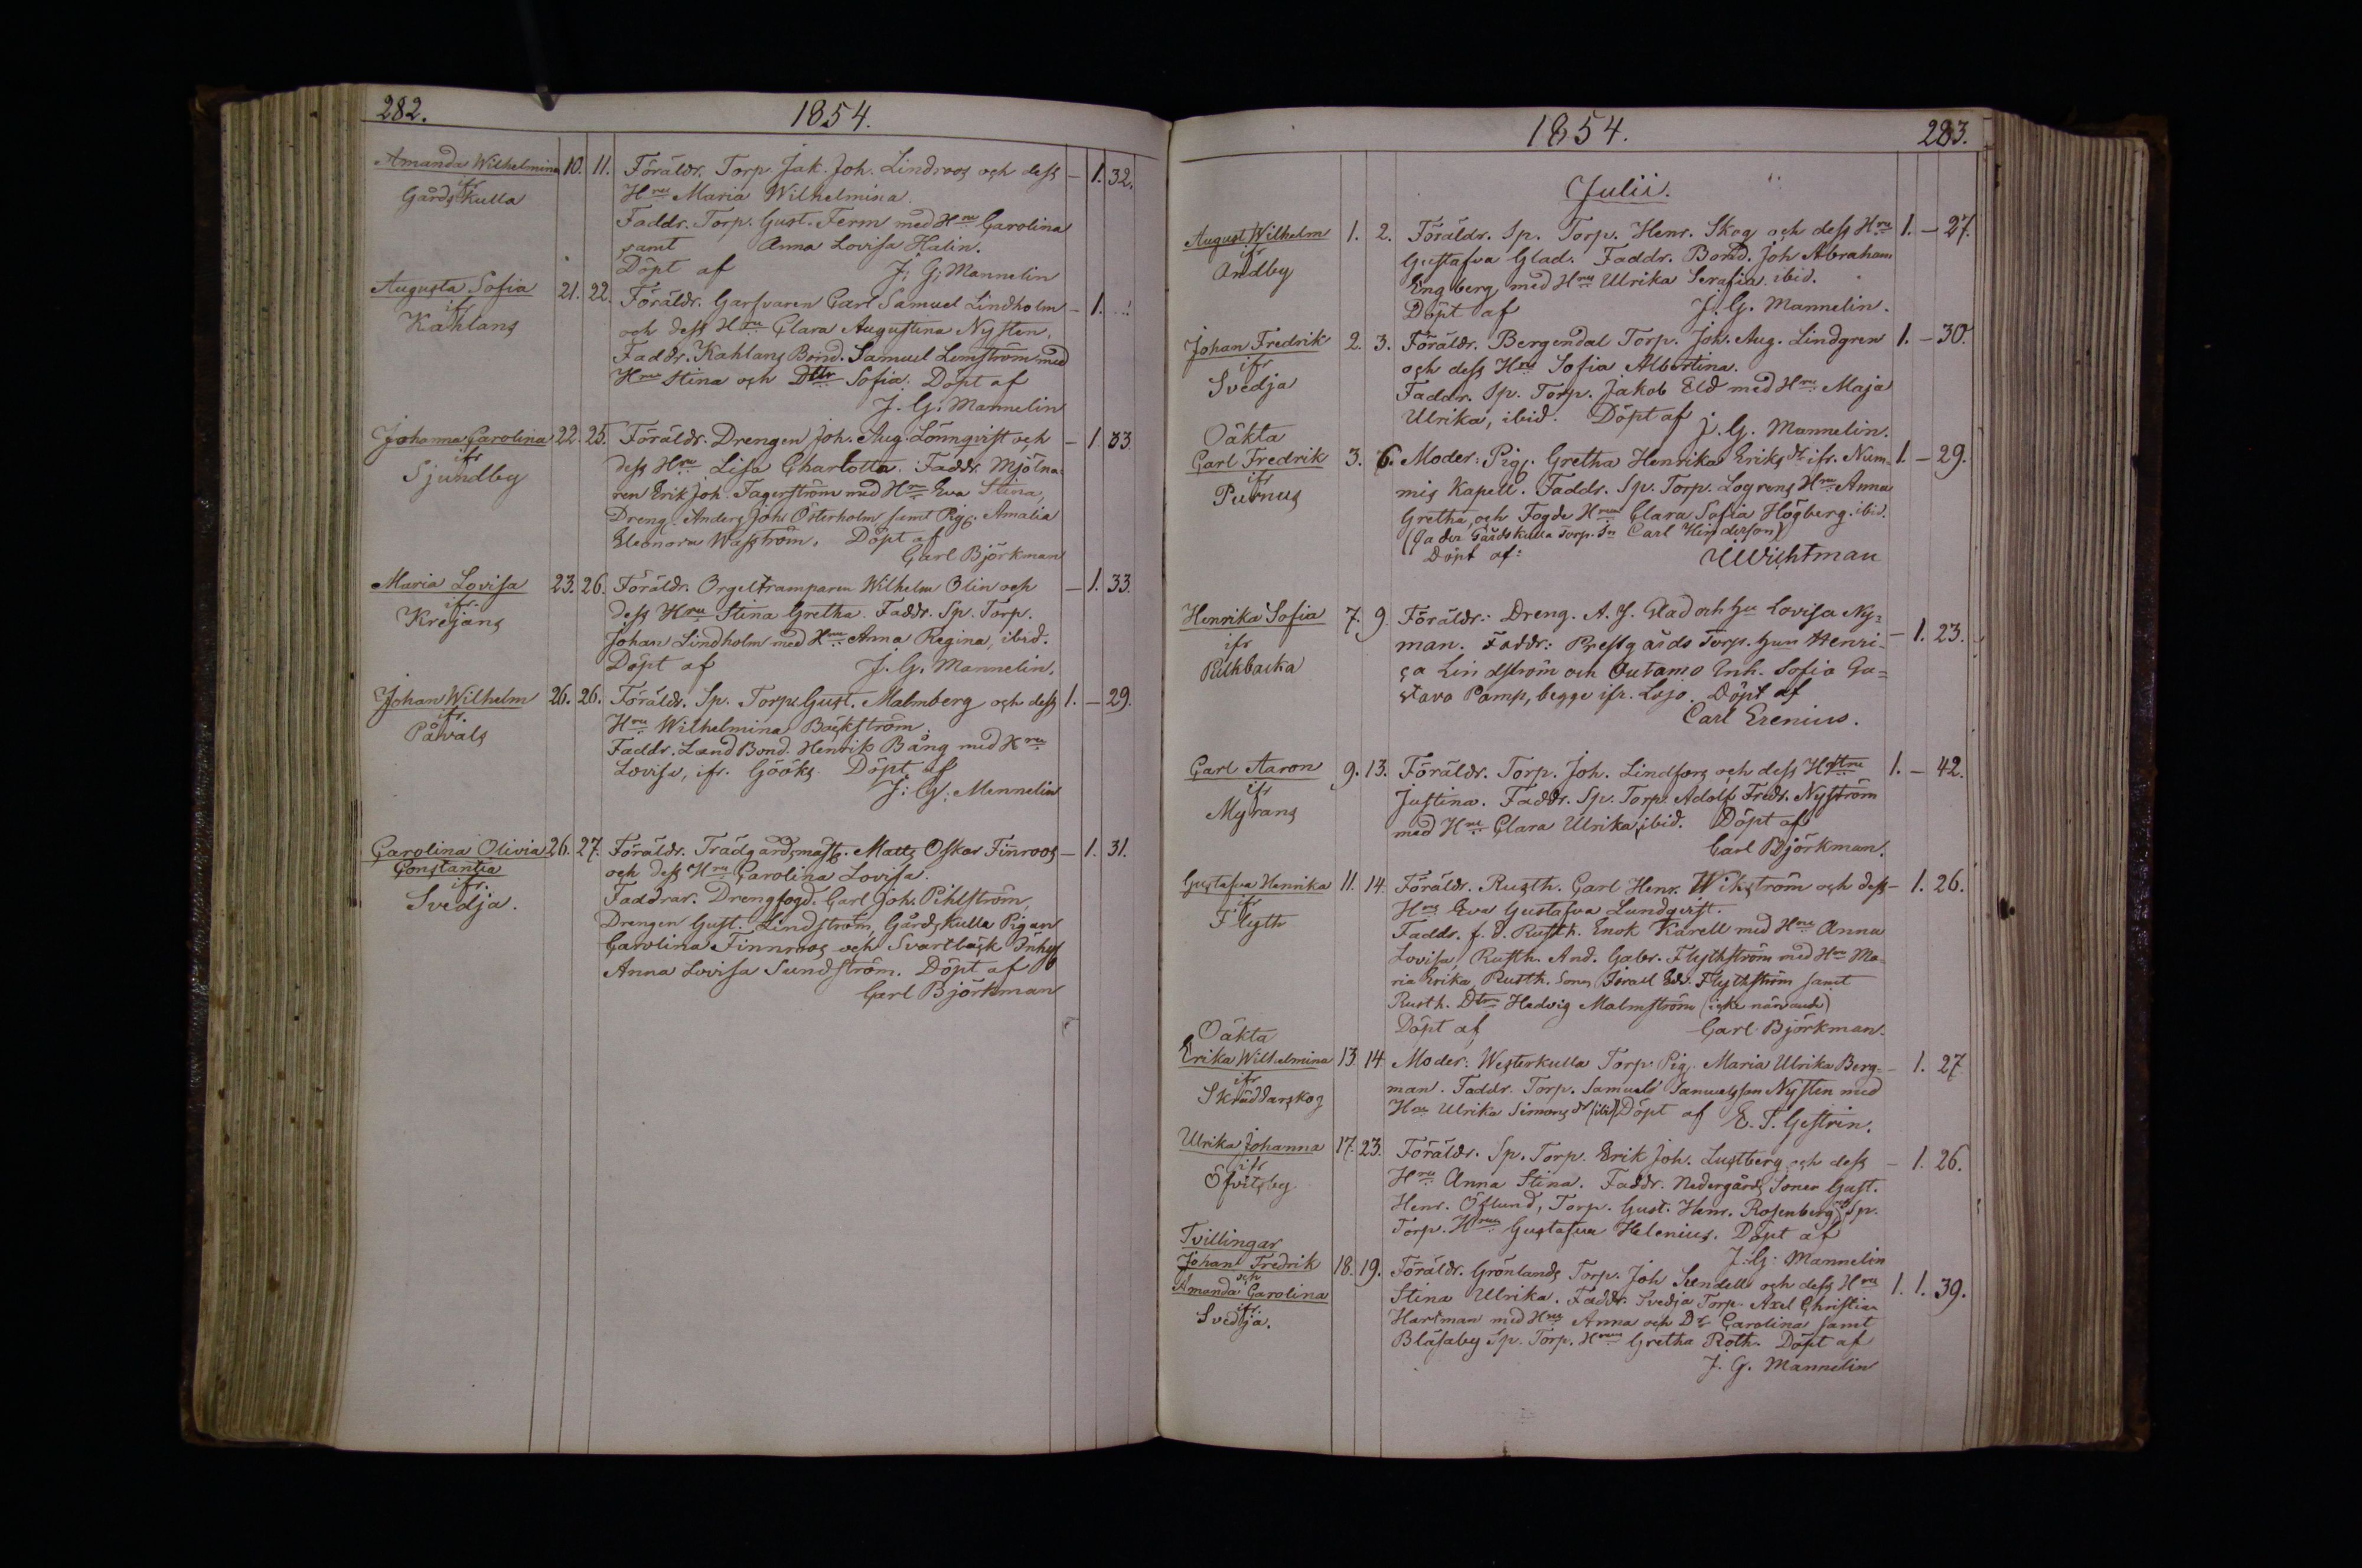 282. 1854.
Amanda Wilhelmina 10. 11. Föräldr. Torp. Jak. Joh. Lindroos och dess — 1. 32.
ifr Hru Maria Wilhelmina.
Gårdskulla Faddr. Torp. Gust. Ferm med Hru Carolina
samt Anna Lovisa Halin.
Döpt af J. G. Mannelin
Augusta Sofia 21. 22. Föräldr. Garfvaren Carl Samuel Lindholm — 1.
ifr och dess Hru Clara Augustina Nysten.
Kahlans Faddr. Kahlans Bond. Samuel Lemström med
Hru Stina och Dttr Sofia. Döpt af
J. G. Mannelin
Johanna Carolina 22. 25. Föräldr. Drengen Joh. Aug. Lönnqvist och — 1. 33
ifr dess Hru Lisa Charlotta. Faddr. Mjölna=
Sjundby ren Erik Joh. Fagerström med Hru Eva Stina,
Dreng. Anders Joh. Österholm samt Pig. Amalia
Eleonora Wasström. Döpt af
Carl Björkman
Maria Lovisa 23. 26. Föräldr. Orgeltramparen Wilhelm Olin och — 1. 33.
ifr. dess Hru Stina Gretha. Faddr. Sp. Torp.
Krejans Johan Lindholm med Hru Anna Regina, ibid.
Döpt af J. G. Mannelin.
Johan Wilhelm 26. 26. Föräldr. Sp. Torp. Gust. Malmberg och dess 1. — 29.
ifr. Hru Wilhelmina Bäckström.
Påvals Faddr. Land Bond. Henrik Bång med Hru
Lovisa, ifr. Gööks. Döpt af
J: G: Mannelin
Carolina Olivia 26. 27. Föräldr. Trädgårdsmäst. Matts Oskar Finroos — 1. 31.
Constantia och dess Hru Carolina Lovisa.
ifr. Faddrar. Drengfogd. Carl Joh. Pihlström,
Svedja. Drengen Gust. Lindström, Gårdskulla Pigan
Carolina Finnroos och Svartbäck Inhys
Anna Lovisa Sundström. Döpt af
Carl Björkman
1854. 283.
Julii.
August Wilhelm 1. 2. Föräldr. Sp. Torp. Henr. Skog och dess Hru 1. — 27.
ifr Gustafva Glad. Faddr. Bond. Joh Abraham
Andby Engberg med Hru Ulrika Serafia ibid.
Döpt af J. G. Mannelin.
Johan Fredrik 2. 3. Föräldr. Bergendal Torp. Joh. Aug. Lindgren 1. — 30.
ifr och dess Hru Sofia Albertina.
Svedja Faddr. Sp. Torp. Jakob Eld med Hru Maja
Ulrika, ibid. Döpt af J. G. Mannelin.
Oäkta
Carl Fredrik 3. 6. Moder: Pig. Gretha Henrika Eriks dr ifr. Num= 1. — 29.
ifr mis Kapell. Faddr. Sp. Torp. Logrens Hru Anna
Purnus Gretha, och Fogde Hru Clara Sofia Högberg. ibid.
Gårdskulla Torp. Sn Carl
Döpt af: Wichtman
Henrika Sofia 7. 9. Föräldr: Dreng. A. J. Glad och Hu Lovisa Ny=
ifr man. Faddr: Prestgårds Torp. Hun Henri= — 1. 23.
Pickbacka ca Lindström och Outamo Enh. Sofia Gu=
stava Pamp, begge ifr. Lojo. Döpt af
Carl Erenius.
Carl Aaron 9. 13. Föräldr. Torp. Joh. Lindfors och dess Hstru 1. — 42.
ifr Justina. Faddr. Sp. Torp. Adolf Fredr. Nyström
Myrans med Hru Clara Ulrika, ibid. Döpt af
Carl Björkman.
Gustafva Henrika 11. 14. Föräldr. Rusth. Carl Henr. Wikström och dess — 1. 26.
ifr Hru Eva Gustafva Lundqvist.
Flyth Faddr. f. d. Rusth. Enok Karell med Hru Anna
Lovisa, Rusth. And. Gabr. Flythström med Hru Ma=
ria Erika, Rusth. Sonen Israel Edv. Flythström samt
Rusth. Dtr Hedvig Malmström (icke närvarande)
Döpt af Carl Björkman.
Oäkta
Erika Wilhelmina 13. 14. Moder: Westerkulla Torp. Pig. Maria Ulrika Berg= — 1. 27
ifr man. Faddr. Torp. Samuel Samuelsson Nysten med
Skräddarskog Hru Ulrika Simons dr (ibid) Döpt af E. T. Gestrin.
Ulrika Johanna 17. 23. Föräldr. Sp. Torp. Erik Joh. Lustberg och dess — 1. 26.
ifr Hru Anna Stina. Faddr. Nedergårds Sonen Gust.
Öfvitsby. Henr. Öslund, Torp. Gust. Henr. Rosenberg, Sp.
Torp. Hru Gustafva Helenius. Döpt af
J. G. Mannelin
Tvillingar
Johan Fredrik 18. 19. Föräldr. Grönlands Torp. Joh Sundell och dess Hru 1. 1. 39.
och Stina Ulrika. Faddr. Svedja Torp. Axel Christian
Amanda Carolina Hartman med Hru Anna och Dr Carolina samt
ifr. Blåsaby Sp. Torp. Hru Gretha Roth. Döpt af
Svedja. J. G. Mannelin